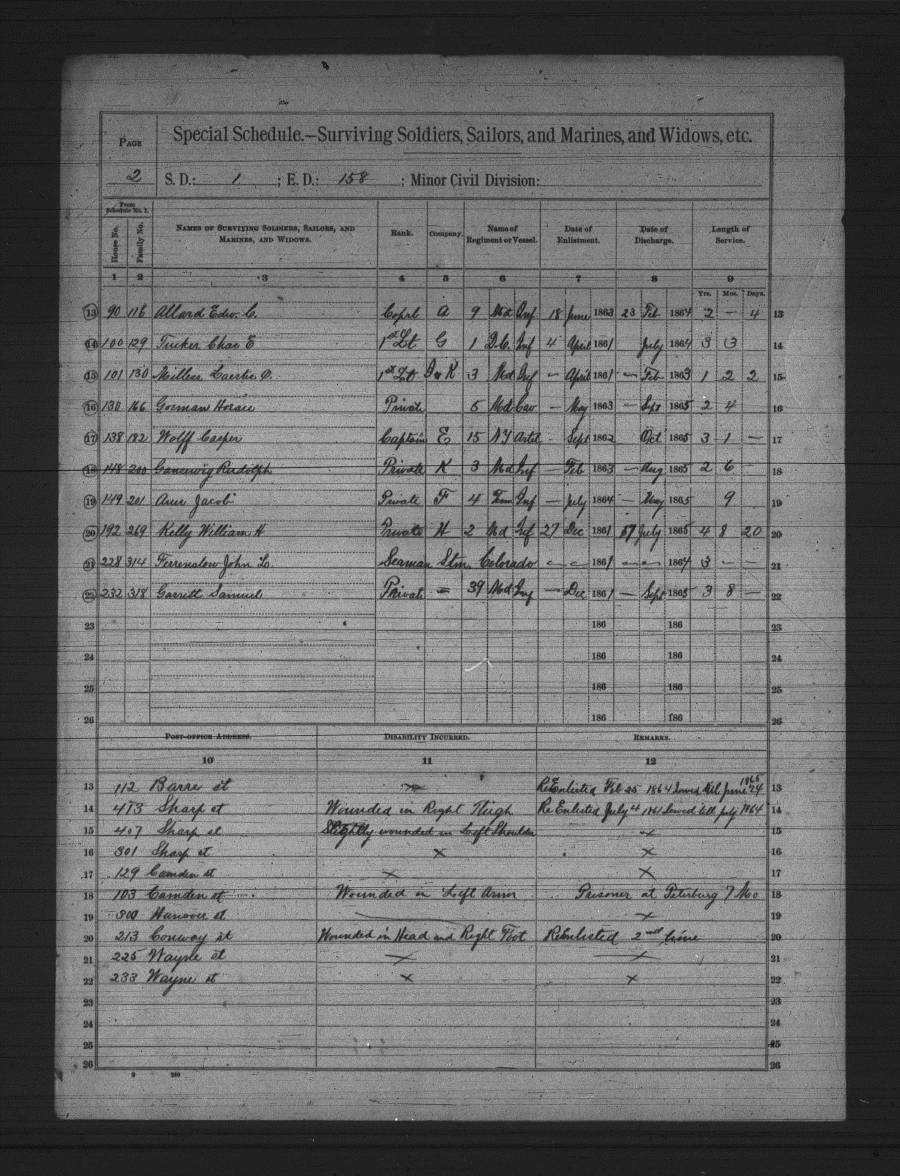 PAGE
2
Special Schedule.—Surviving Soldiers, Sailors, and Marines, and Widows, etc.
S. D.: 1 ; E. D.: 158 ; Minor Civil Division:
From Schedule No. 1.
House No. Family No. NAMES OF SURVIVING SOLDIERS, SAILORS, AND MARINES, AND WIDOWS. Rank. Company. Name of Regiment or Vessel. Date of Enlistment. Date of Discharge. Length of Service.
1 2 3 4 5 6 7 8 9
Yrs. Mos. Days.
13 90 116 Allard Edw. C. Coprl A 9 Md Inf 18 June 1863 23 Feb 1864 2 — 4 13
14 100 129 Tucker Chas E 1st Lt G 1 D.C. Inf 4 April 1861 July 1864 3 3 14
15 101 130 1st Lt K 3 Md Inf — April 1861 — Feb 1863 1 2 2 15
16 130 166 Gorman Horace Private 5 Md Cav — May 1863 — Sept 1865 2 4 16
17 138 182 Wolff Casper Captain E 15 NY Artil - Sept 1862 Oct 1865 3 1 — 17
18 148 200 Ganzewig Rudolph Private K 3 Md Inf — Feb 1863 — Aug 1865 2 6 — 18
19 149 201 Auer Jacob Private F 4 Inf — July 1864 — May 1865 9 19
20 192 269 Kelly William H Private H 2 Md Inf 27 Dec 1861 July 1865 4 8 20 20
21 228 314 John L. Seaman Stm Colorado — — 1861 — — 1864 3 — — 21
22 232 318 Garrett Samuel Private = 39 Md Inf — Dec 1861 — Sept 1865 3 8 — 22
23 186 186 23
24 186 186 24
25 186 186 25
26 186 186 26
POST-OFFICE ADDRESS. DISABILITY INCURRED. REMARKS.
10 11 12
13 112 Barre st ReEnlisted Feb 25 1864 Served till June 24 1865 13
14 413 Sharp st Wounded in Right Thigh Re Enlisted July 4 1861 Served till July 1864 14
15 407 Sharp st Slightly wounded in Left Shoulder x 15
16 301 Sharp st x x 16
17 129 Camden st x x 17
18 103 Camden st Wounded in Left Arm Prisoner at Peterburg 7 Mo 18
19 300 Hanover st x 19
20 213 Conway st Wounded in Head and Right Foot ReEnlisted 2nd time 20
21 225 Wayne st x x 21
22 233 Wayne st x x 22
23 23
24 24
25 25
26 26